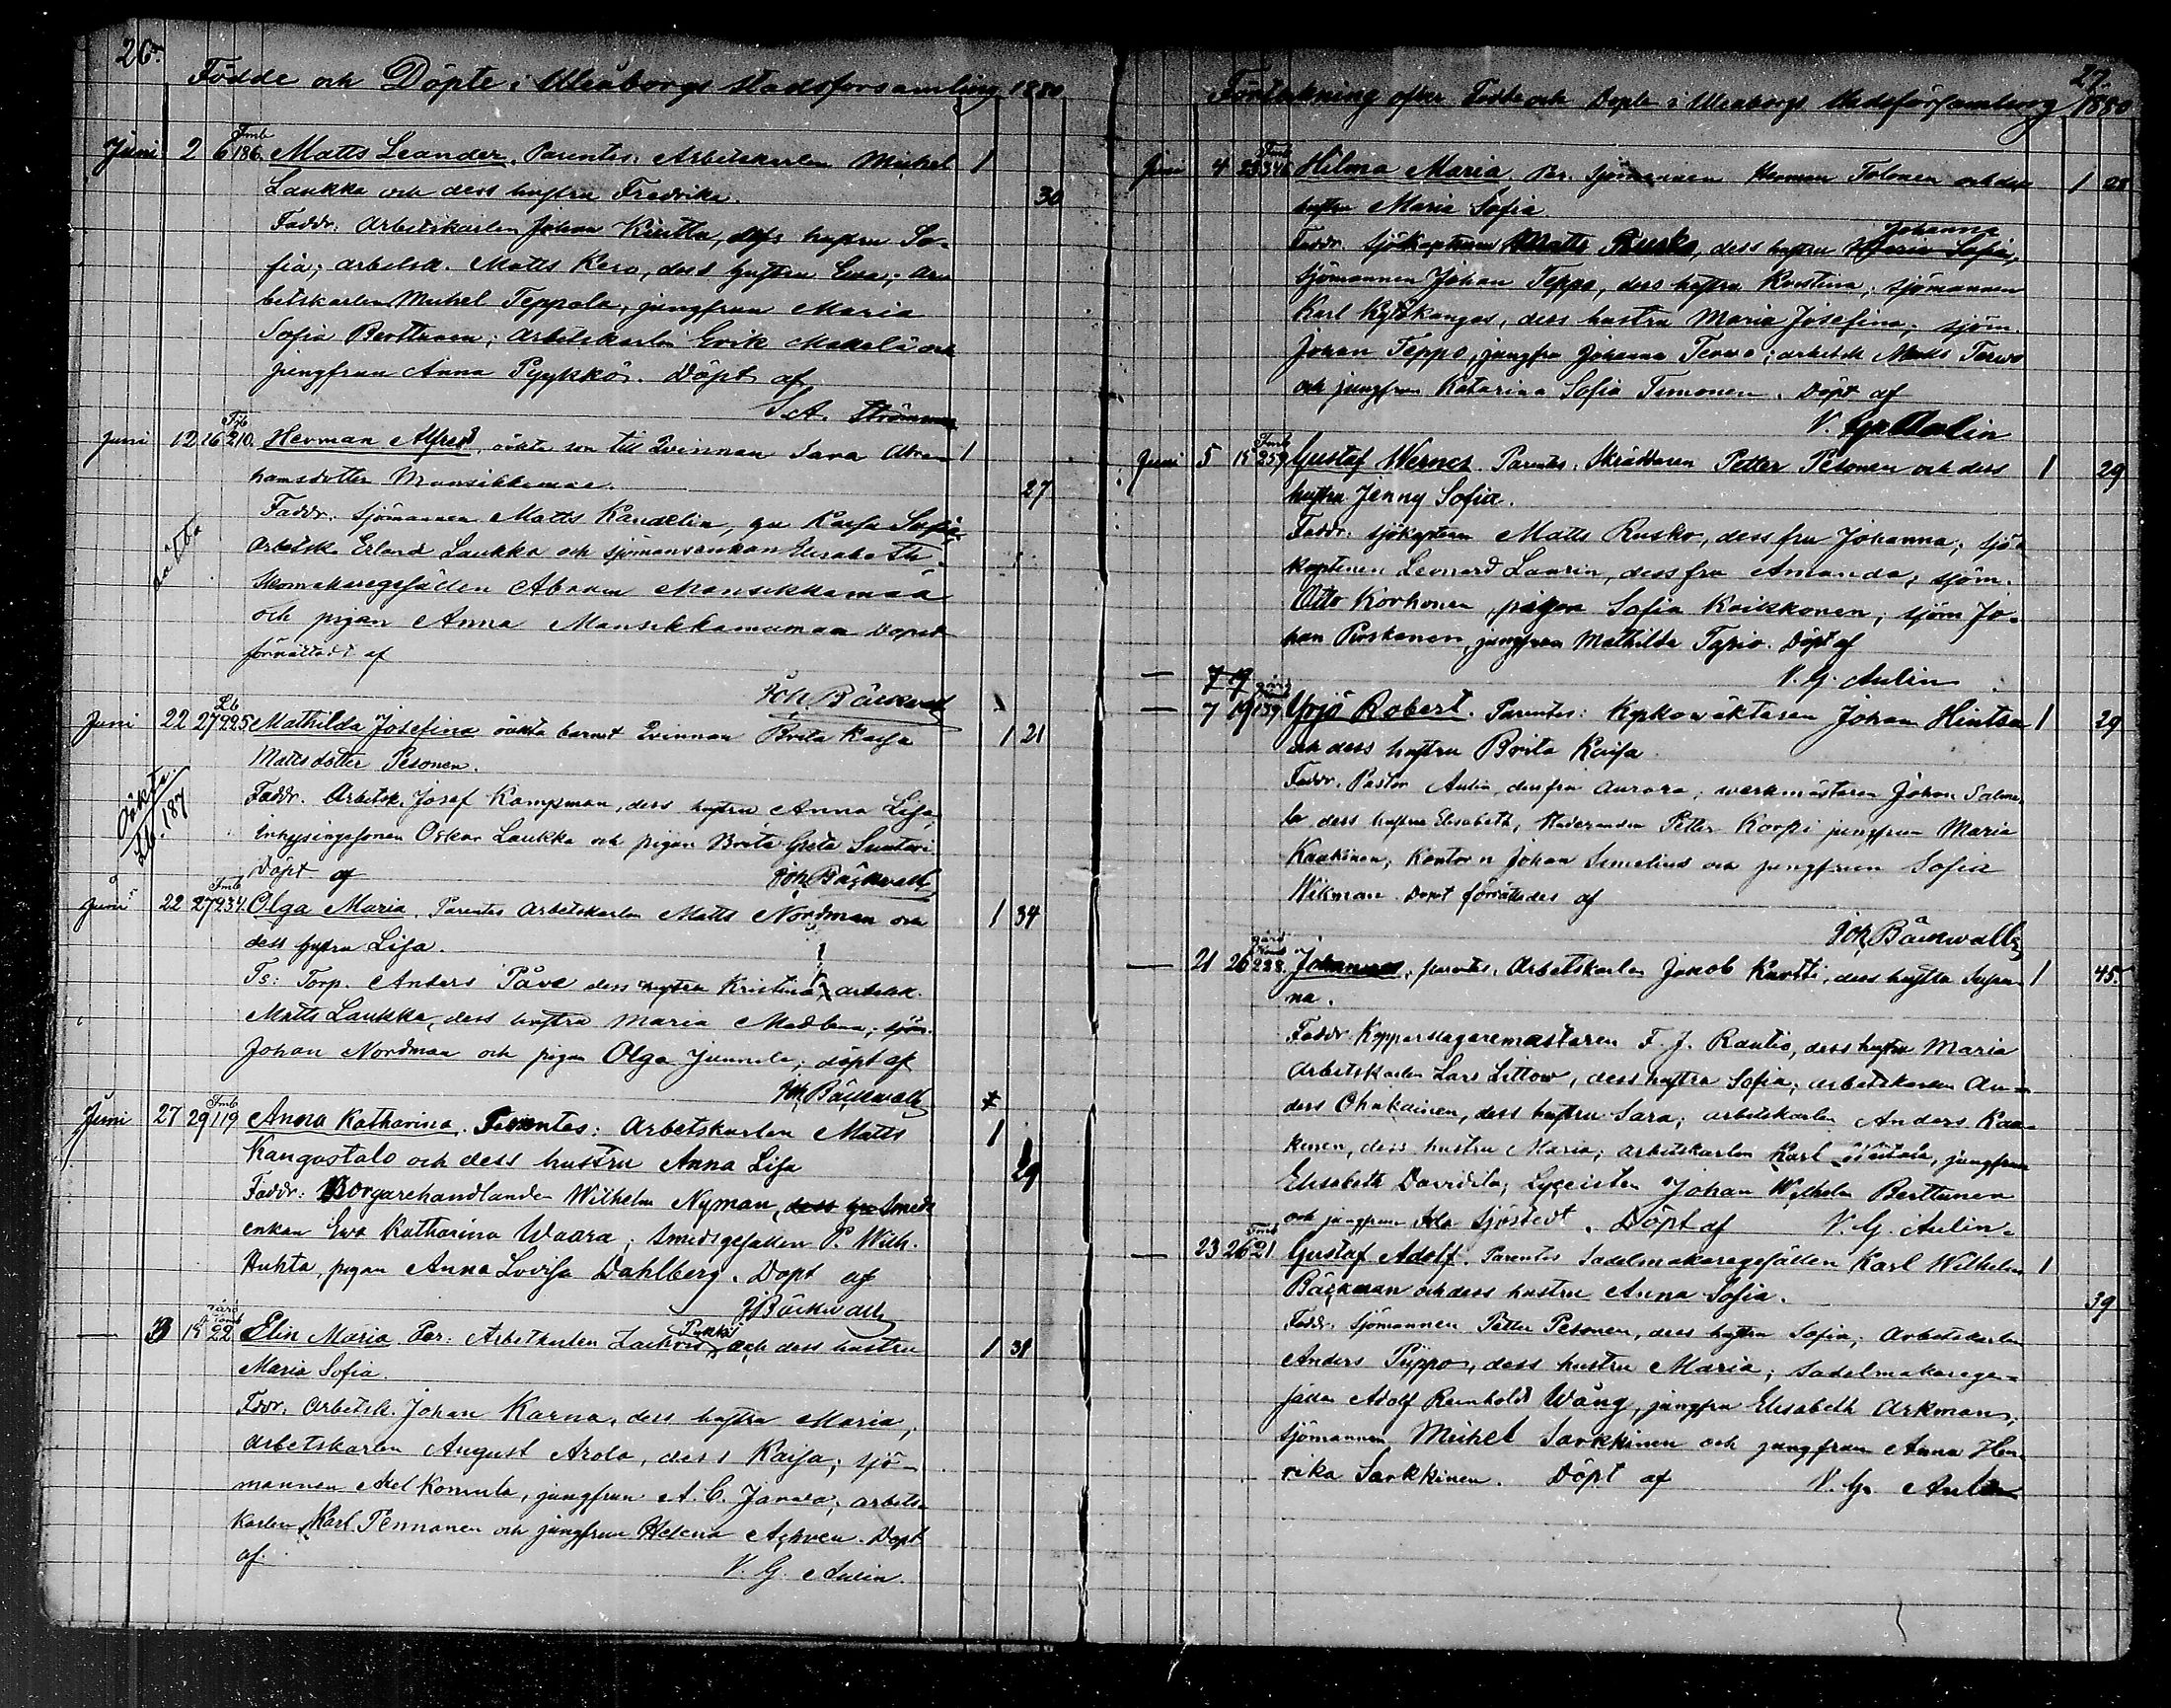 26.
Födde och Döpte i Uleåborgs stadsforsamling 1880
Juni 2 6 Fmb 186. Matts Leander. Parentes: Arbetskarlen Michel 1
Laukka och dess hustru Fredrika. 30
Faddr: Arbetskarlen Johan Kinttu, dess hustru So-
fia; arbetsk. Matts Kero, dess hustru Ewa; ar-
betskarlen Michel Teppola, jungfrun Maria
Sofia Berttunen; Arbetskarlen Erik Mäkelä och
jungfrun Anna Pyykkö. Döpt af
S. A. Strömmer
Juni 12 16 210. Herman Alfred, oäkta son till Qvinnan Sara Abra- 1
hamsdotter Mansikkamaa. 27
Faddr. Sjömannen Matts Kandelin, Kaisa Sofia
Arbetsk. Erland Laukka och sjömansenkan Elisabeth
oäkta
Skomakaregesällen Abram Mansikkamaa
och pigan Anna Mansikkamaa Döpt
förrättadt af
Joh Bäckwall
Juni 22 27 Lb 225 Mathilda Josefina oäkta barn Qvinnan Brita Kaisa 1 21
Mattsdotter Pesonen.
Oäkta Lb. 187
Faddr. Arbetsk. Josef Kampman, dess hustru Anna Lisa,
inhysingesonen Oskar Laukka och pigan Brita Greta Suutari
Döpt af Joh Bäckwall
Juni 22 27 Fmb 234 Olga Maria. Parentes Arbetskarlen Matts Nordman och 1 34
dess hustru Lisa.
Ts: Torp. Anders Påve dess hustru Kristina, arbetsk.
Matts Laukka, dess hustru Maria Madlena; sjöm.
Johan Nordman och pigan Olga Junnila; döpt af
Joh. Bäckwall
Juni 27 29 Fmb 119 Anna Katharina. Parentes: Arbetskarlen Matts 1
Kangastalo och dess hustru Anna Lisa 29
Faddr: Borgarehandlanden Wilhelm Nyman, dess fru Smeds
enkan Ewa Katharina Waara; Smedsgesällen P. Wilh.
Huhta, pigan Anna Lovisa Dahlberg. Döpt af
J Bäckwall
— 3 15 gård Fmb 22 Elin Maria Par: Arbetkarlen Zachris Pukki och dess hustru 1 31
Maria Sofia.
Fddr. Arbetsk. Johan Karna, dess hustru Maria,
Arbetskarlen August Arola, dess Kaisa; sjö-
mannen Axel Komula, jungfrun A. C. Jarva; arbets-
karlen Karl Pennanen och jungfrun Helena Ahven. Döpt
af. V. G. Aulin.
27.
Förteckning öfver Födde och Döpte i Uleåborgs Stadsförsamling 1880
Juni 4 23 Fmb 346 Hilma Maria. Par. Sjömannen Herman Tolonen och dess 1 28
hustru Maria Sofia
Johanna
Faddr. Sjökaptenen Matts Rusko, dess hustru Maria Sofia,
Sjömannen Johan Teppo, dess hustru Kristina; sjömannen
Karl Kytökangas, dess hustru Maria Josefina; sjöm.
Johan Teppo, jungfru Johanna Terwo; arbetsk Matts Terwo
och jungfrun Katarina Sofia Timonen. Döpt af
V. G. Aulin
Juni 5 15 Fmb 259 Gustaf Werner. Parentes. Skräddaren Petter Pesonen och dess 1 29
hustru Jenny Sofia.
Faddr: sjökaptenen Matts Rusko, dess fru Johanna; sjö-
kaptenen Leonard Laurin, dess fru Amanda; sjöm.
Otto Korhonen, pigan Sofia Keikkonen; sjöm Jo-
han Koskonen, jungfrun Mathilda Tapio. Döpt af
V. G. Aulin
— 7 9
— 7 19 gård 139 Yrjö Robert. Parentes: Kyrkowäktaren Johan Hintsa 1 29
och dess hustru Brita Kaisa.
Faddr. Pastor Aulin, dess fru Aurora; werkmästaren Johan Salme-
la dess hustru Elisabeth, Studeranden Petter Korpi jungfrun Maria
Kaakinen; Kontor n Johan Simelius och jungfrun Sofia
Wikman. Döpt förrättades af
Joh Bäckwall
— 21 26 gård Fmb 228. Johannes; parentes. Arbetskarlen Jakob Kurtti, dess hustru Susan- 1 45
na.
Faddr. Kopparslagaremästaren F. J. Rautio, dess hustru Maria
Arbetskarlen Lars Littow, dess hustru Sofia; arbetskarlen An-
ders Ohukainen, dess hustru Sara; arbetskarlen Anders Kaa-
kinen, dess hustru Maria; arbetskarlen Karl Heitala, jungfrun
Elisabeth Davidila; Lyceisten Johan Wilhelm Berttunen
och jungfrun Ida Sjöstedt. Döpt af V. G. Aulin.
— 23 26 Fmb 21 Gustaf Adolf. Parentes Sadelmakaregesällen Karl Wilhelm 1
Bäckman och dess hustru Anna Sofia. 39
Faddr. Sjömannen Petter Pesonen, dess hustru Sofia; Arbetskarlen
Anders Piippo, dess hustru Maria; Sadelmakarege-
sällen Adolf Reinhold Wång, jungfru Elisabeth Arkman;
Sjömannen Michel Sarkkinen och jungfrun Anna Hen-
rika Sarkkinen. Döpt af V. G. Aulin